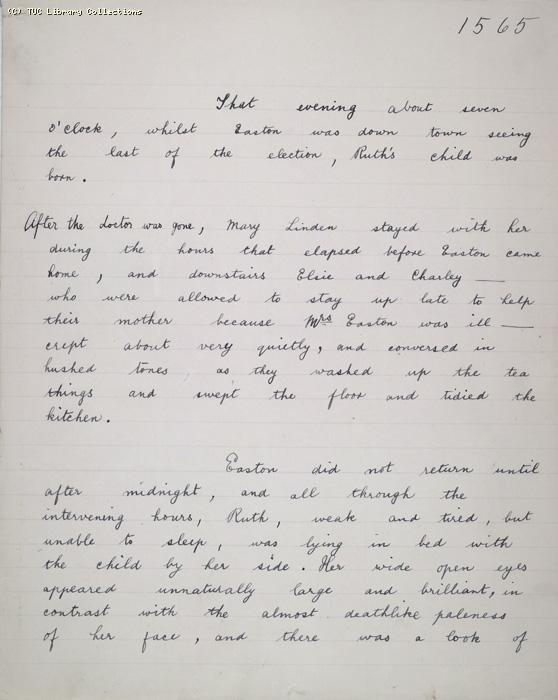 (C) TUC Library Collections
1565
That evening about seven
o'clock, whilst Easton was down town seeing
the last of the election, Ruth's child was
born.
After the doctor was gone, Mary Linden stayed with her
during the hours that elapsed before Easton came
home, and downstairs Elsie and Charley —
who were allowed to stay up late to help
their mother because Mrs Easton was ill —
crept about very quietly, and conversed in
hushed tones as they washed up the tea
things and swept the floor and tidied the
kitchen.
Easton did not return until
after midnight, and all through the
intervening hours, Ruth, weak and tired, but
unable to sleep, was lying in bed with
the child by her side. Her wide open eyes
appeared unnaturally large and brilliant, in
contrast with the almost deathlike paleness
of her face, and there was a look of